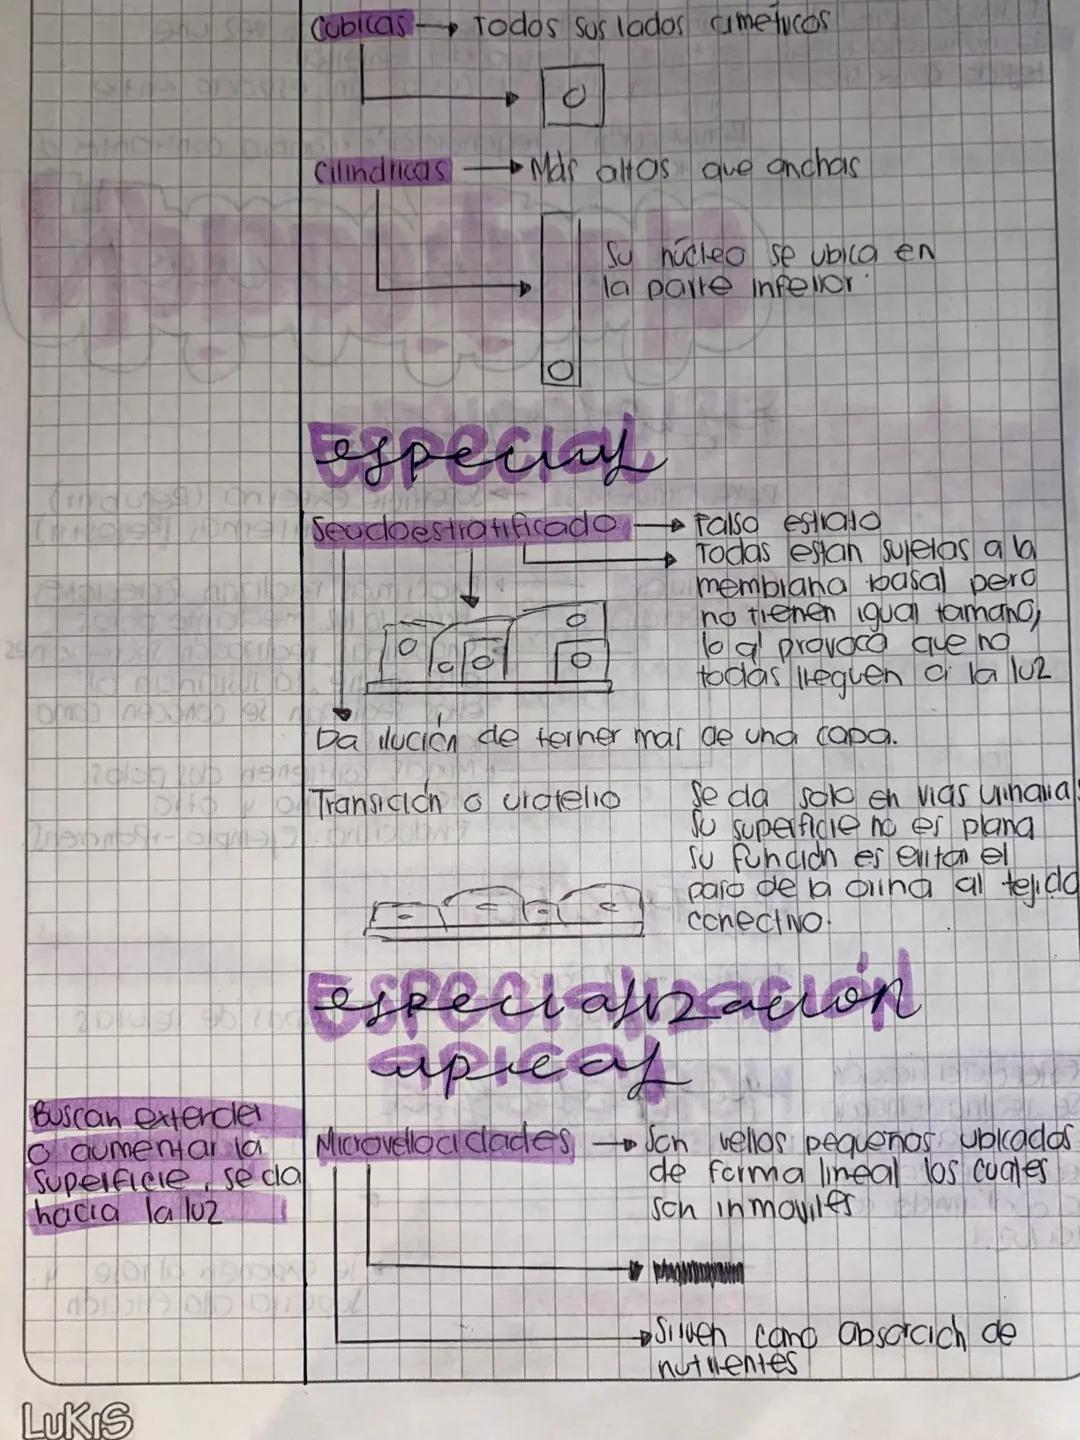 Cubicas → Todos sus lados cimetricos
Cilindricas → Más altas que anchas
Su núcleo se ubica en
la parte inferior.
especial
Seudoestratificado → Falso estrato
→ Todas estan sujetas a la
membrana basal pero
no tienen igual tamano,
lo q provoca que no
todas lleguen a la luz
Da ilución de terner mas de una capa.
Transición o urotelio
Se da solo en vias urinarias
Su superficie no es plana
su función es evitar el
paso de la orina al tejido
conectivo.
especialización
apical
Buscan extender
o aumentar la
superficie, se da
hacia la luz
Microvellocidades → Son vellos pequeños ubicados
de forma lineal los cuales
son inmoviles
Sirven como absorcion de
nutrientes
LUKIS